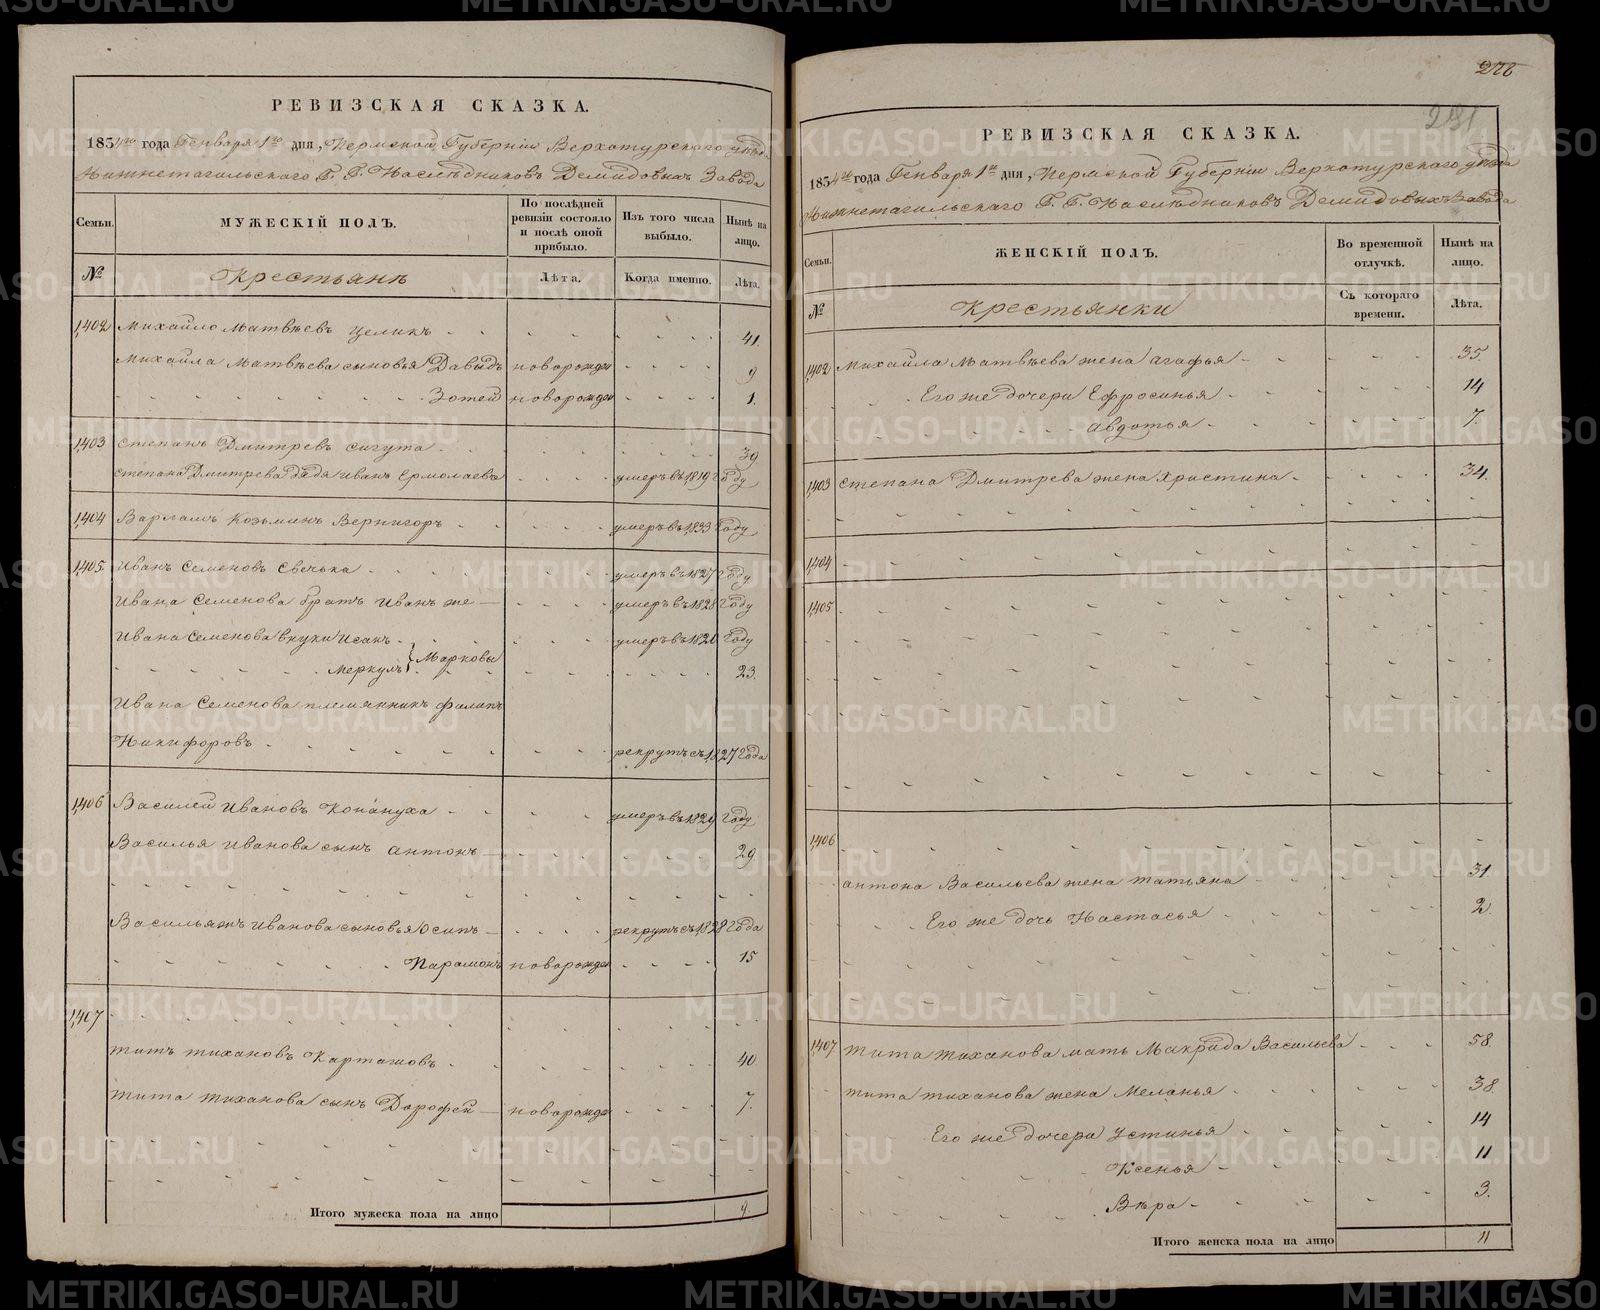 РЕВИЗСКАЯ СКАЗКА.
1834го года Генваря 1го дня, Пермской Губерніи Верхотурского уѣзда
Нижнетагильского Г. Г. Наслѣдниковъ Демидовыхъ Завода
Семьи.
МУЖЕСКІЙ ПОЛЪ.
По послѣдней ревизіи состояло и послѣ оной прибыло.
Изъ того числа выбыло.
Нынѣ на лицо.
№
Крестьянъ
Лѣта.
Когда именно.
Лѣта.
1,402 Михайло Матвѣевъ Целикъ 41.
Михайла Матвѣева сыновья Давыдъ новорожден 9
Зотей новорожден 1.
1,403 Степанъ Дмитревъ Сигута 39
Степана Дмитрева дядя Иванъ Ермолаевъ умеръ въ 1819 году
1,404 Варламъ Козьминъ Вернигоръ умеръ въ 1833 году
1,405. Иванъ Семеновъ Свечька умеръ въ 1827 году
Ивана Семенова братъ Иванъ же умеръ въ 1828 году
Ивана Семенова внуки Исакъ умеръ въ 1820 году
Меркулъ } Марковы 23.
Ивана Семенова племянникъ Филипъ
Никифоровъ рекрутъ съ 1,827 года
1,406 Василей Ивановъ Копануха умеръ въ 1829 году
Василья Иванова сынъ Антонъ 29
Васильяжъ Иванова сыновья Осипъ рекрутъ съ 1,828 года
Парамонъ новорожден 15
1,407
Титъ Тихановъ Карташовъ 40
Тита Тиханова сынъ Дорофей новорожден 7.
Итого мужеска пола на лицо 9
276
281
РЕВИЗСКАЯ СКАЗКА.
1834го года Генваря 1го дня, Пермской Губерніи Верхотурского уѣзда
Нижнетагильскаго Г. Г. Наслѣдниковъ Демидовыхъ Завода
Семьи.
ЖЕНСКІЙ ПОЛЪ.
Во временной отлучкѣ.
Нынѣ на лицо.
№
Крестьянки
Съ котораго времени.
Лѣта.
1,402 Михайла Матвѣева жена Агафья 35.
Его же дочери Ефросинья 14
Авдотья 7.
1,403 Степана Дмитрева жена Христина 34.
1,404
1,405
1,406
Антона Васильева жена Татьяна 31
Его же дочь Настасья 2.
1,407 Тита Тиханова мать Макрида Васильева 58
Тита Тиханова жена Меланья 38.
Его же дочери Устинья 14
Ксенья 11
Вѣра 3.
Итого женска пола на лицо 11
METRIKI.GASO-URAL.RU